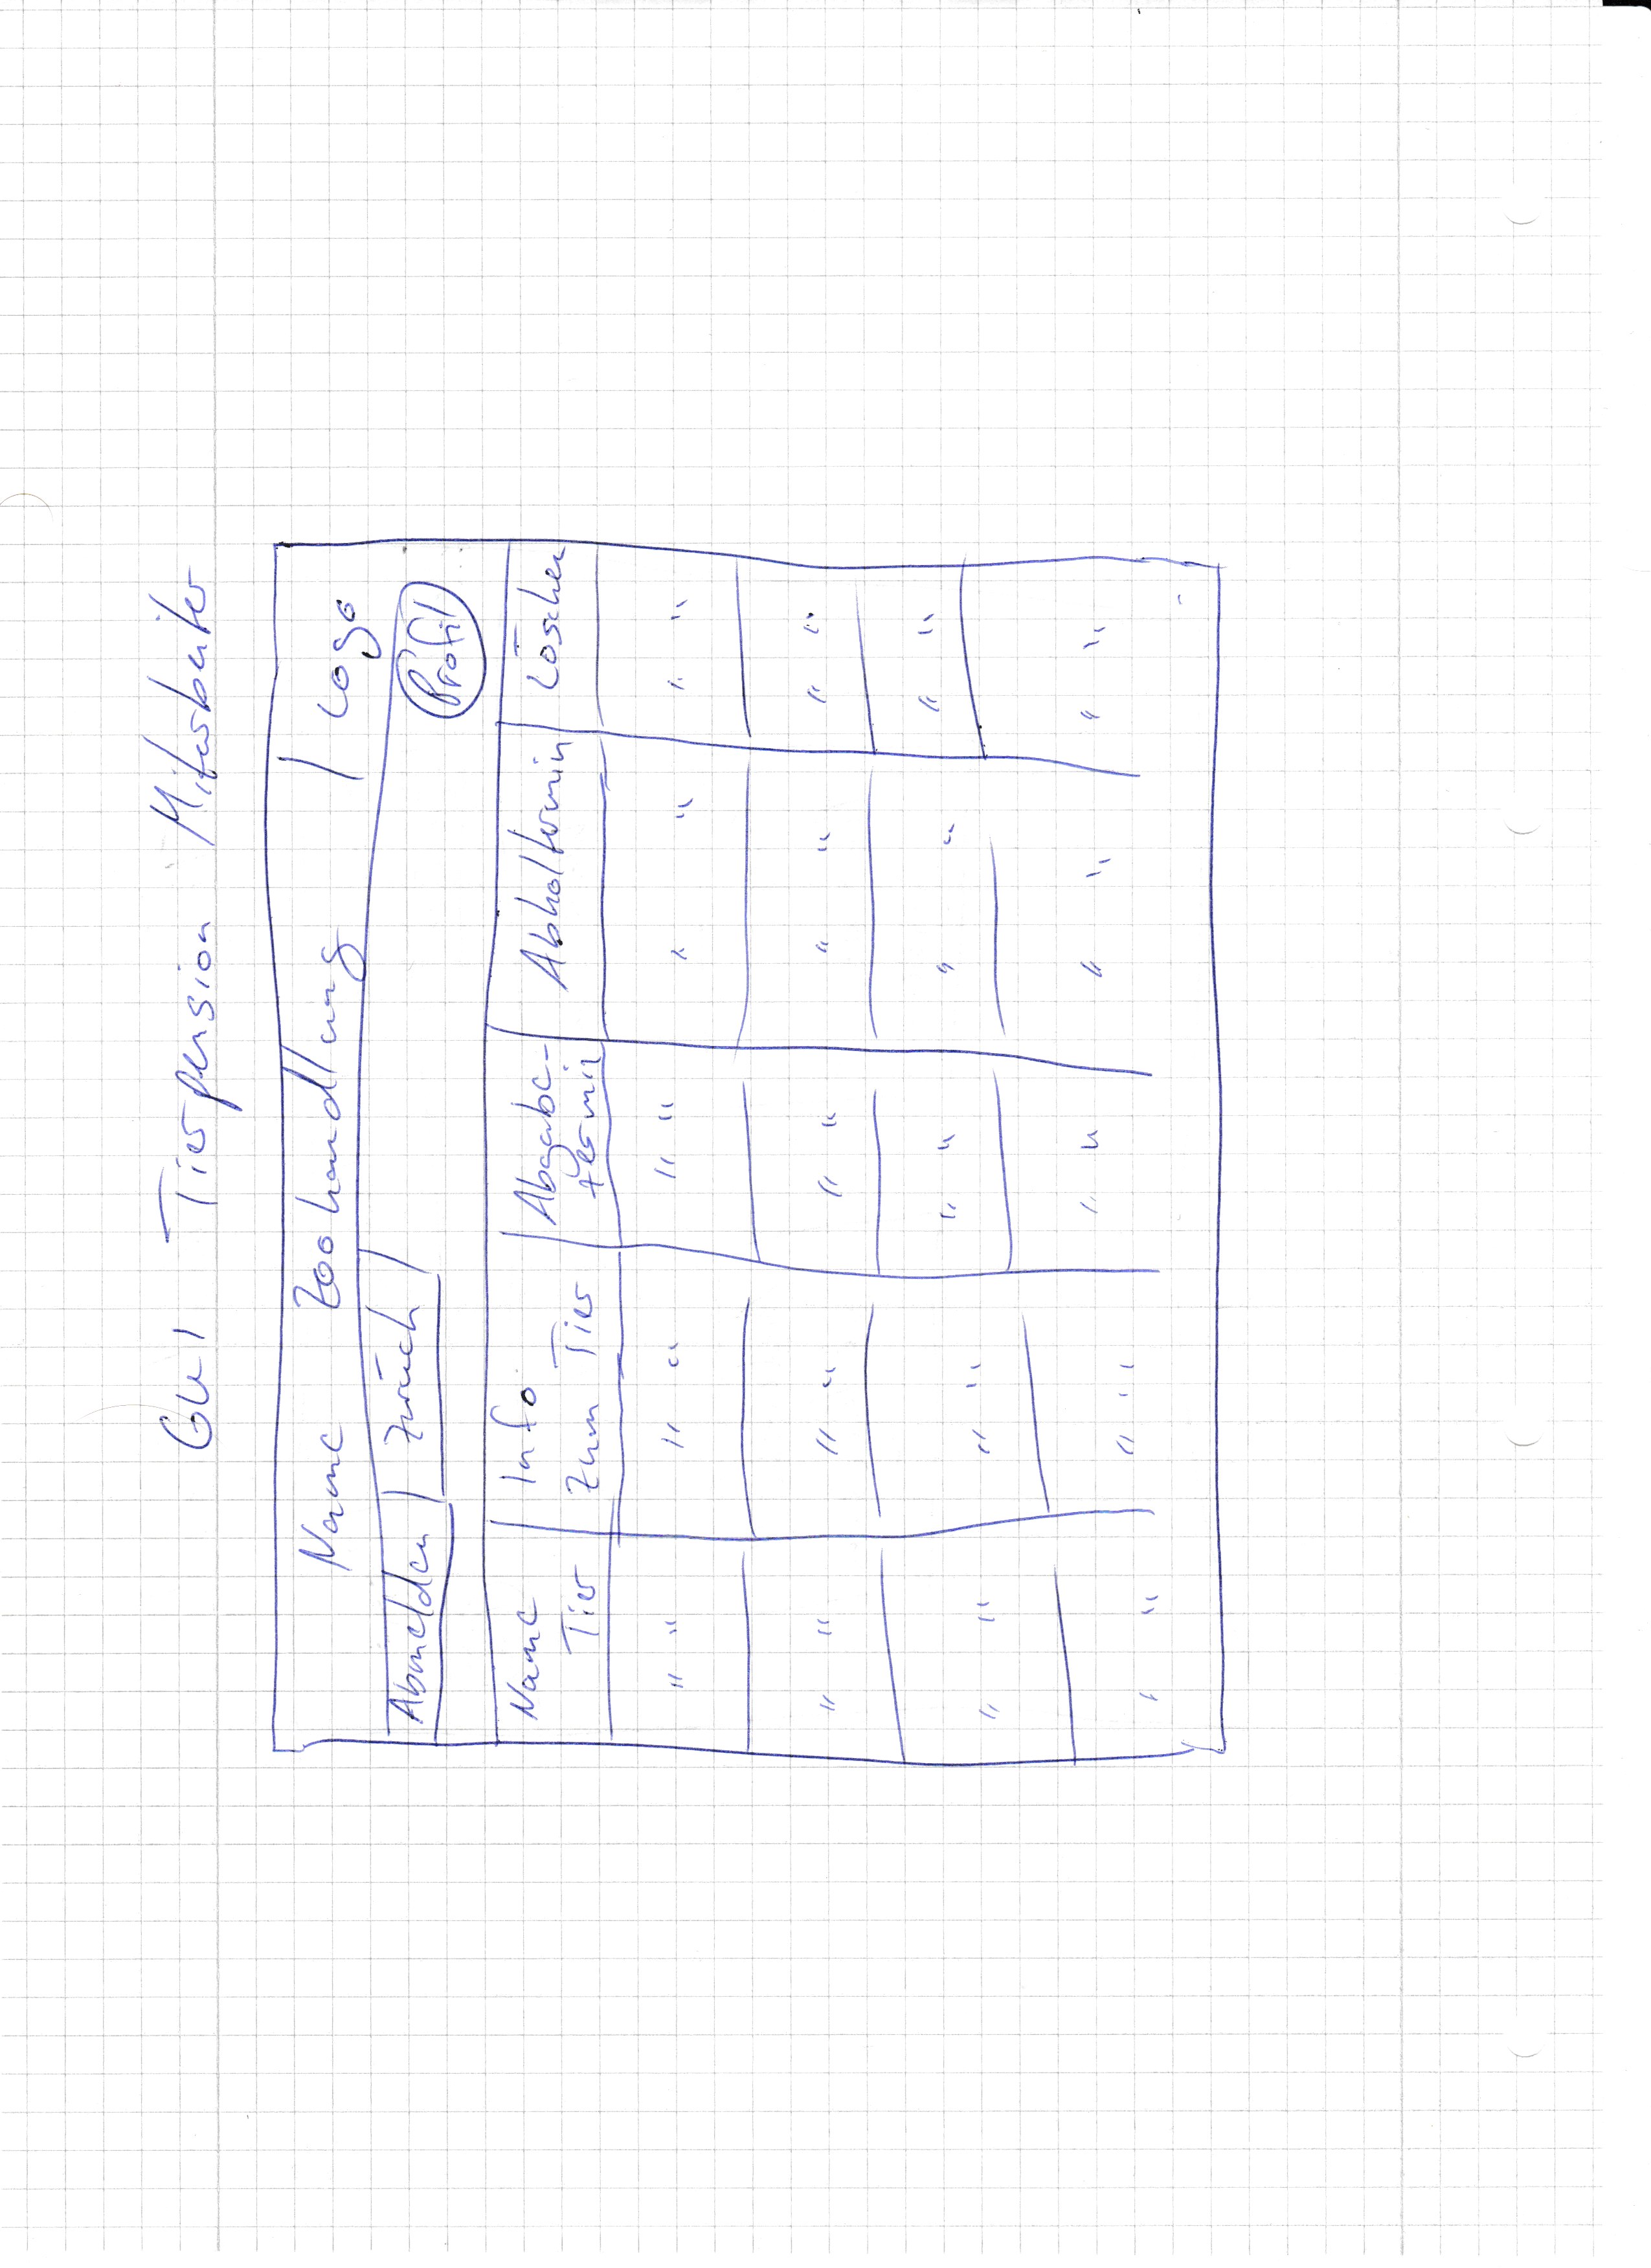 GUI Tierpension Mitarbeiter
Name Zoohandlung | Logo
Abmelden | Zurück | Profil
Name Tier | Info zum Tier | Abgabe-termin | Abholtermin | Löschen
" " | " " | " " | " " | " "
" " | " " | " " | " " | " "
" " | " " | " " | " " | " "
" " | " " | " " | " " | " "